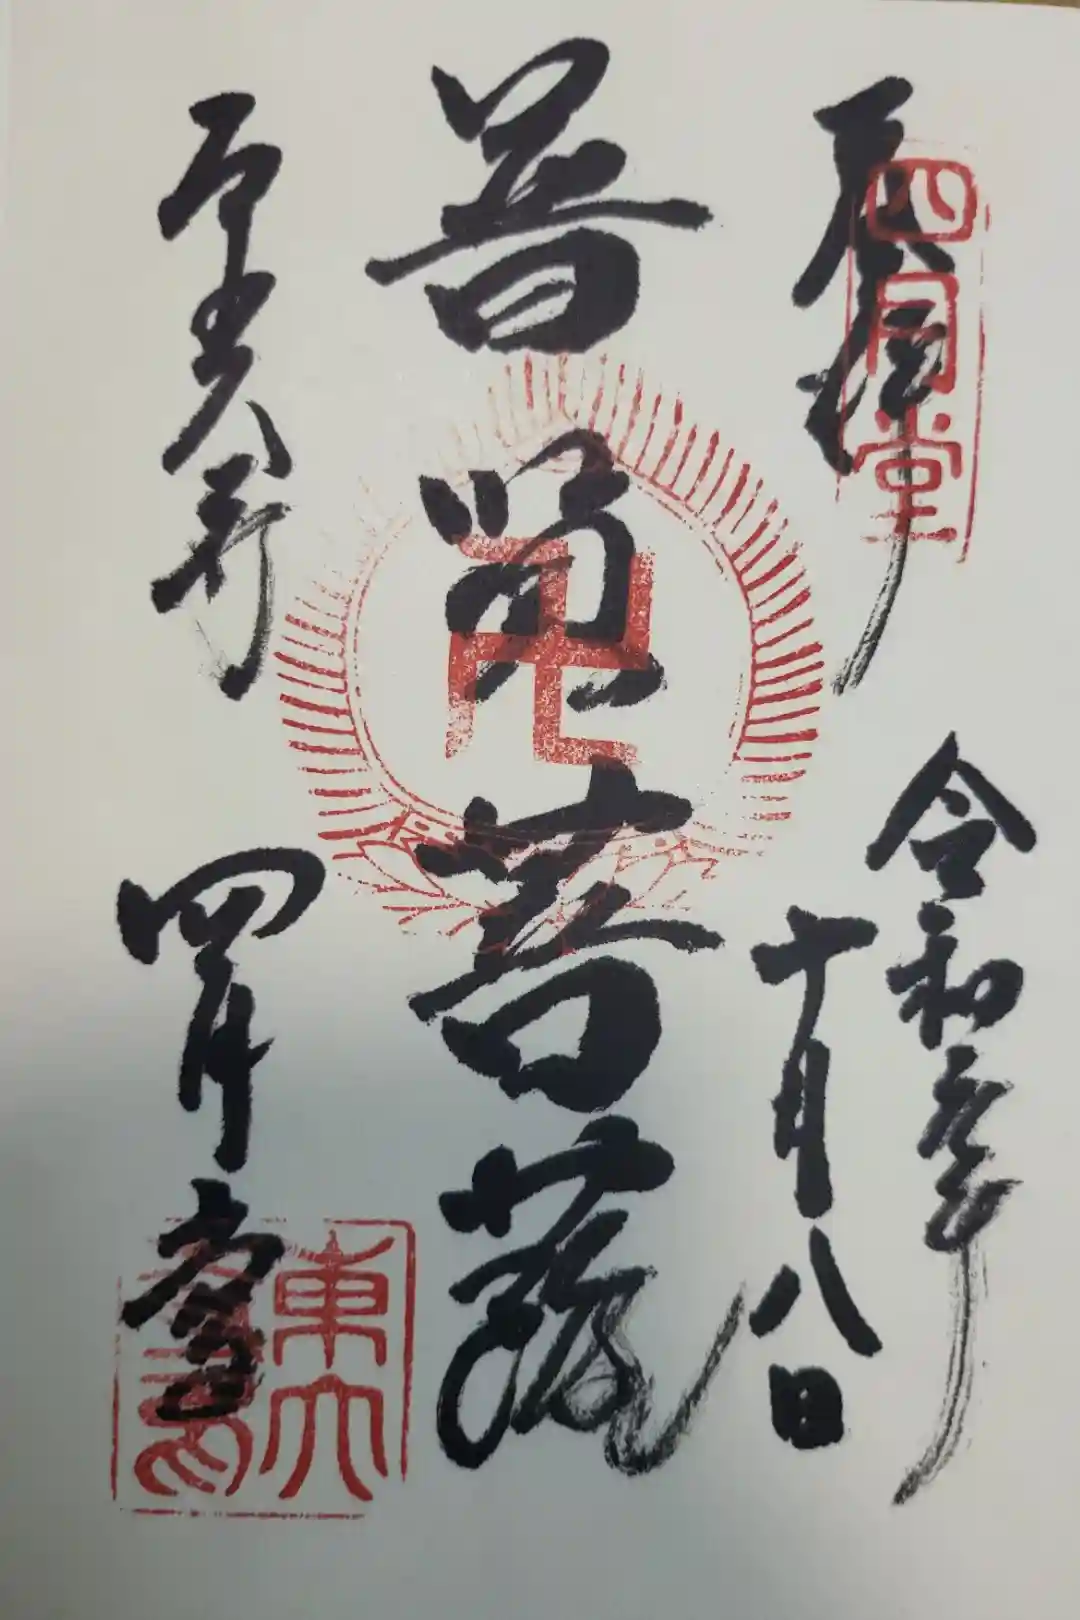 奉拝
四月堂
令和元年
十月八日
普賢菩薩
東大寺
四月堂
東大